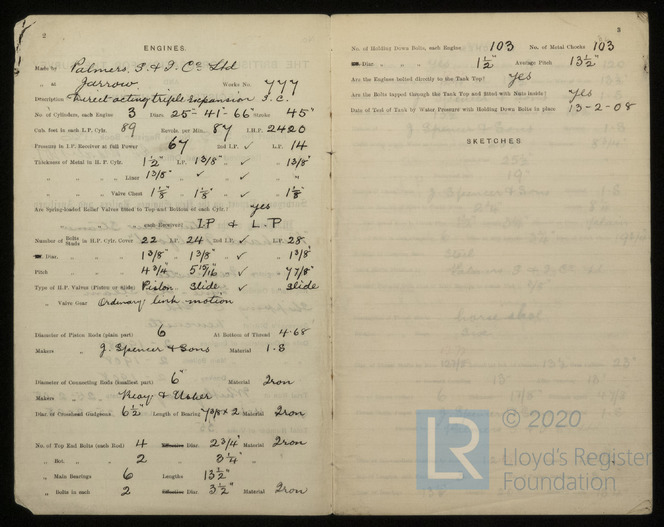 2
ENGINES.
Made by Palmers S. & I. Co Ltd
„ at Jarrow. Works No. 777
Description Direct acting triple Expansion S.C.
No. of Cylinders, each Engine 3 Diars. 25" - 41" - 66" Stroke 45"
Cub. feet in each L.P. Cylr. 89 Revols. per Min. 87 I.H.P. 2420
Pressure in I.P. Receiver at full Power 67 2nd I.P. ✓ L.P. 14
Thickness of Metal in H.P. Cylr. 1½" I.P. 1 3/8" „ ✓ „ 1 3/8"
„ „ „ Liner 1 3/8" „ ✓ „ ✓ „ "
„ „ „ Valve Chest 1⅛" „ 1⅛" „ ✓ „ 1⅛"
Are Spring-loaded Relief Valves fitted to Top and Bottom of each Cylr.? yes
„ „ „ each Receiver? I.P & L.P
Number of Bolts Studs in H.P. Cylr. Cover 22 I.P. 24 2nd I.P. ✓ L.P. 28
Diar. „ „ 1 3/8" „ 1 3/8" „ ✓ „ 1 3/8"
Pitch „ „ 4 3/4" „ 5 15/16" „ ✓ „ 4 7/8"
Type of H.P. Valves (Piston or Slide) Piston „ Slide „ ✓ „ Slide
„ Valve Gear Ordinary link motion
Diameter of Piston Rods (plain part) 6 At Bottom of Thread 4.68
Makers J. Spencer & Sons Material I.S
Diameter of Connecting Rods (smallest part) 6" Material Iron
Makers Reay & Usher
Diar. of Crosshead Gudgeons 6½" Length of Bearing 7 3/8 x 2 Material Iron
No. of Top End Bolts (each Rod) 4 Effective Diar. 2 3/4" Material Iron
„ Bot. „ „ 2 „ 3¼" „
„ Main Bearings 6 Lengths 13½"
„ Bolts in each 2 Effective Diar. 3½" Material Iron
3
No. of Holding Down Bolts, each Engine 103 No. of Metal Chocks 103
Diar. „ „ „ 1½" Average Pitch 13½"
Are the Engines bolted directly to the Tank Top? yes
Are the Bolts tapped through the Tank Top and fitted with Nuts inside? yes
Date of Test of Tank by Water Pressure with Holding Down Bolts in place 13-2-08
SKETCHES.
© 2020
LR
Lloyd's Register
Foundation